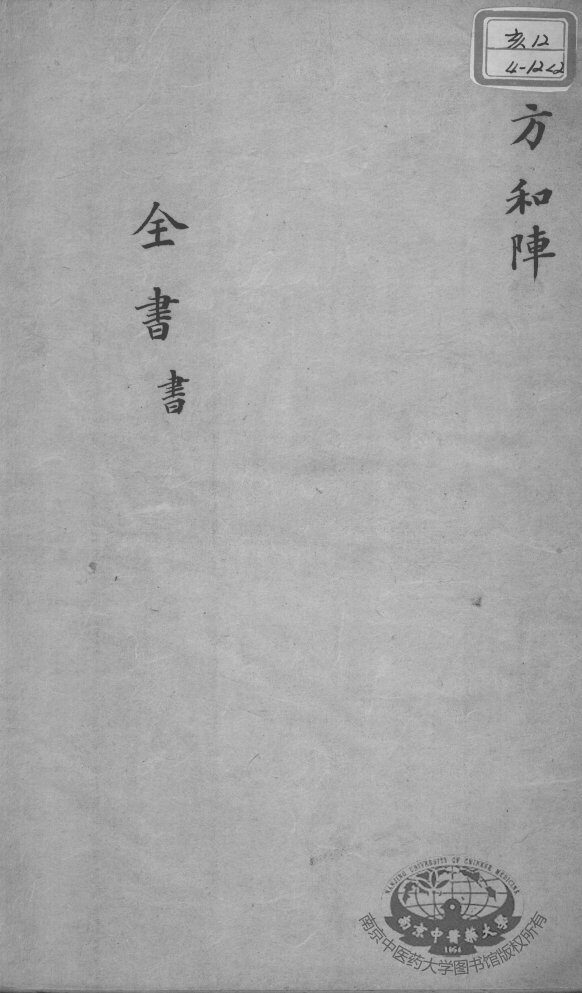 亥12
4-1222
方和陣
全書書
NANJING UNIVERSITY OF CHINESE MEDICINE
南京中醫藥大學
1954
南京中医药大学图书馆版权所有